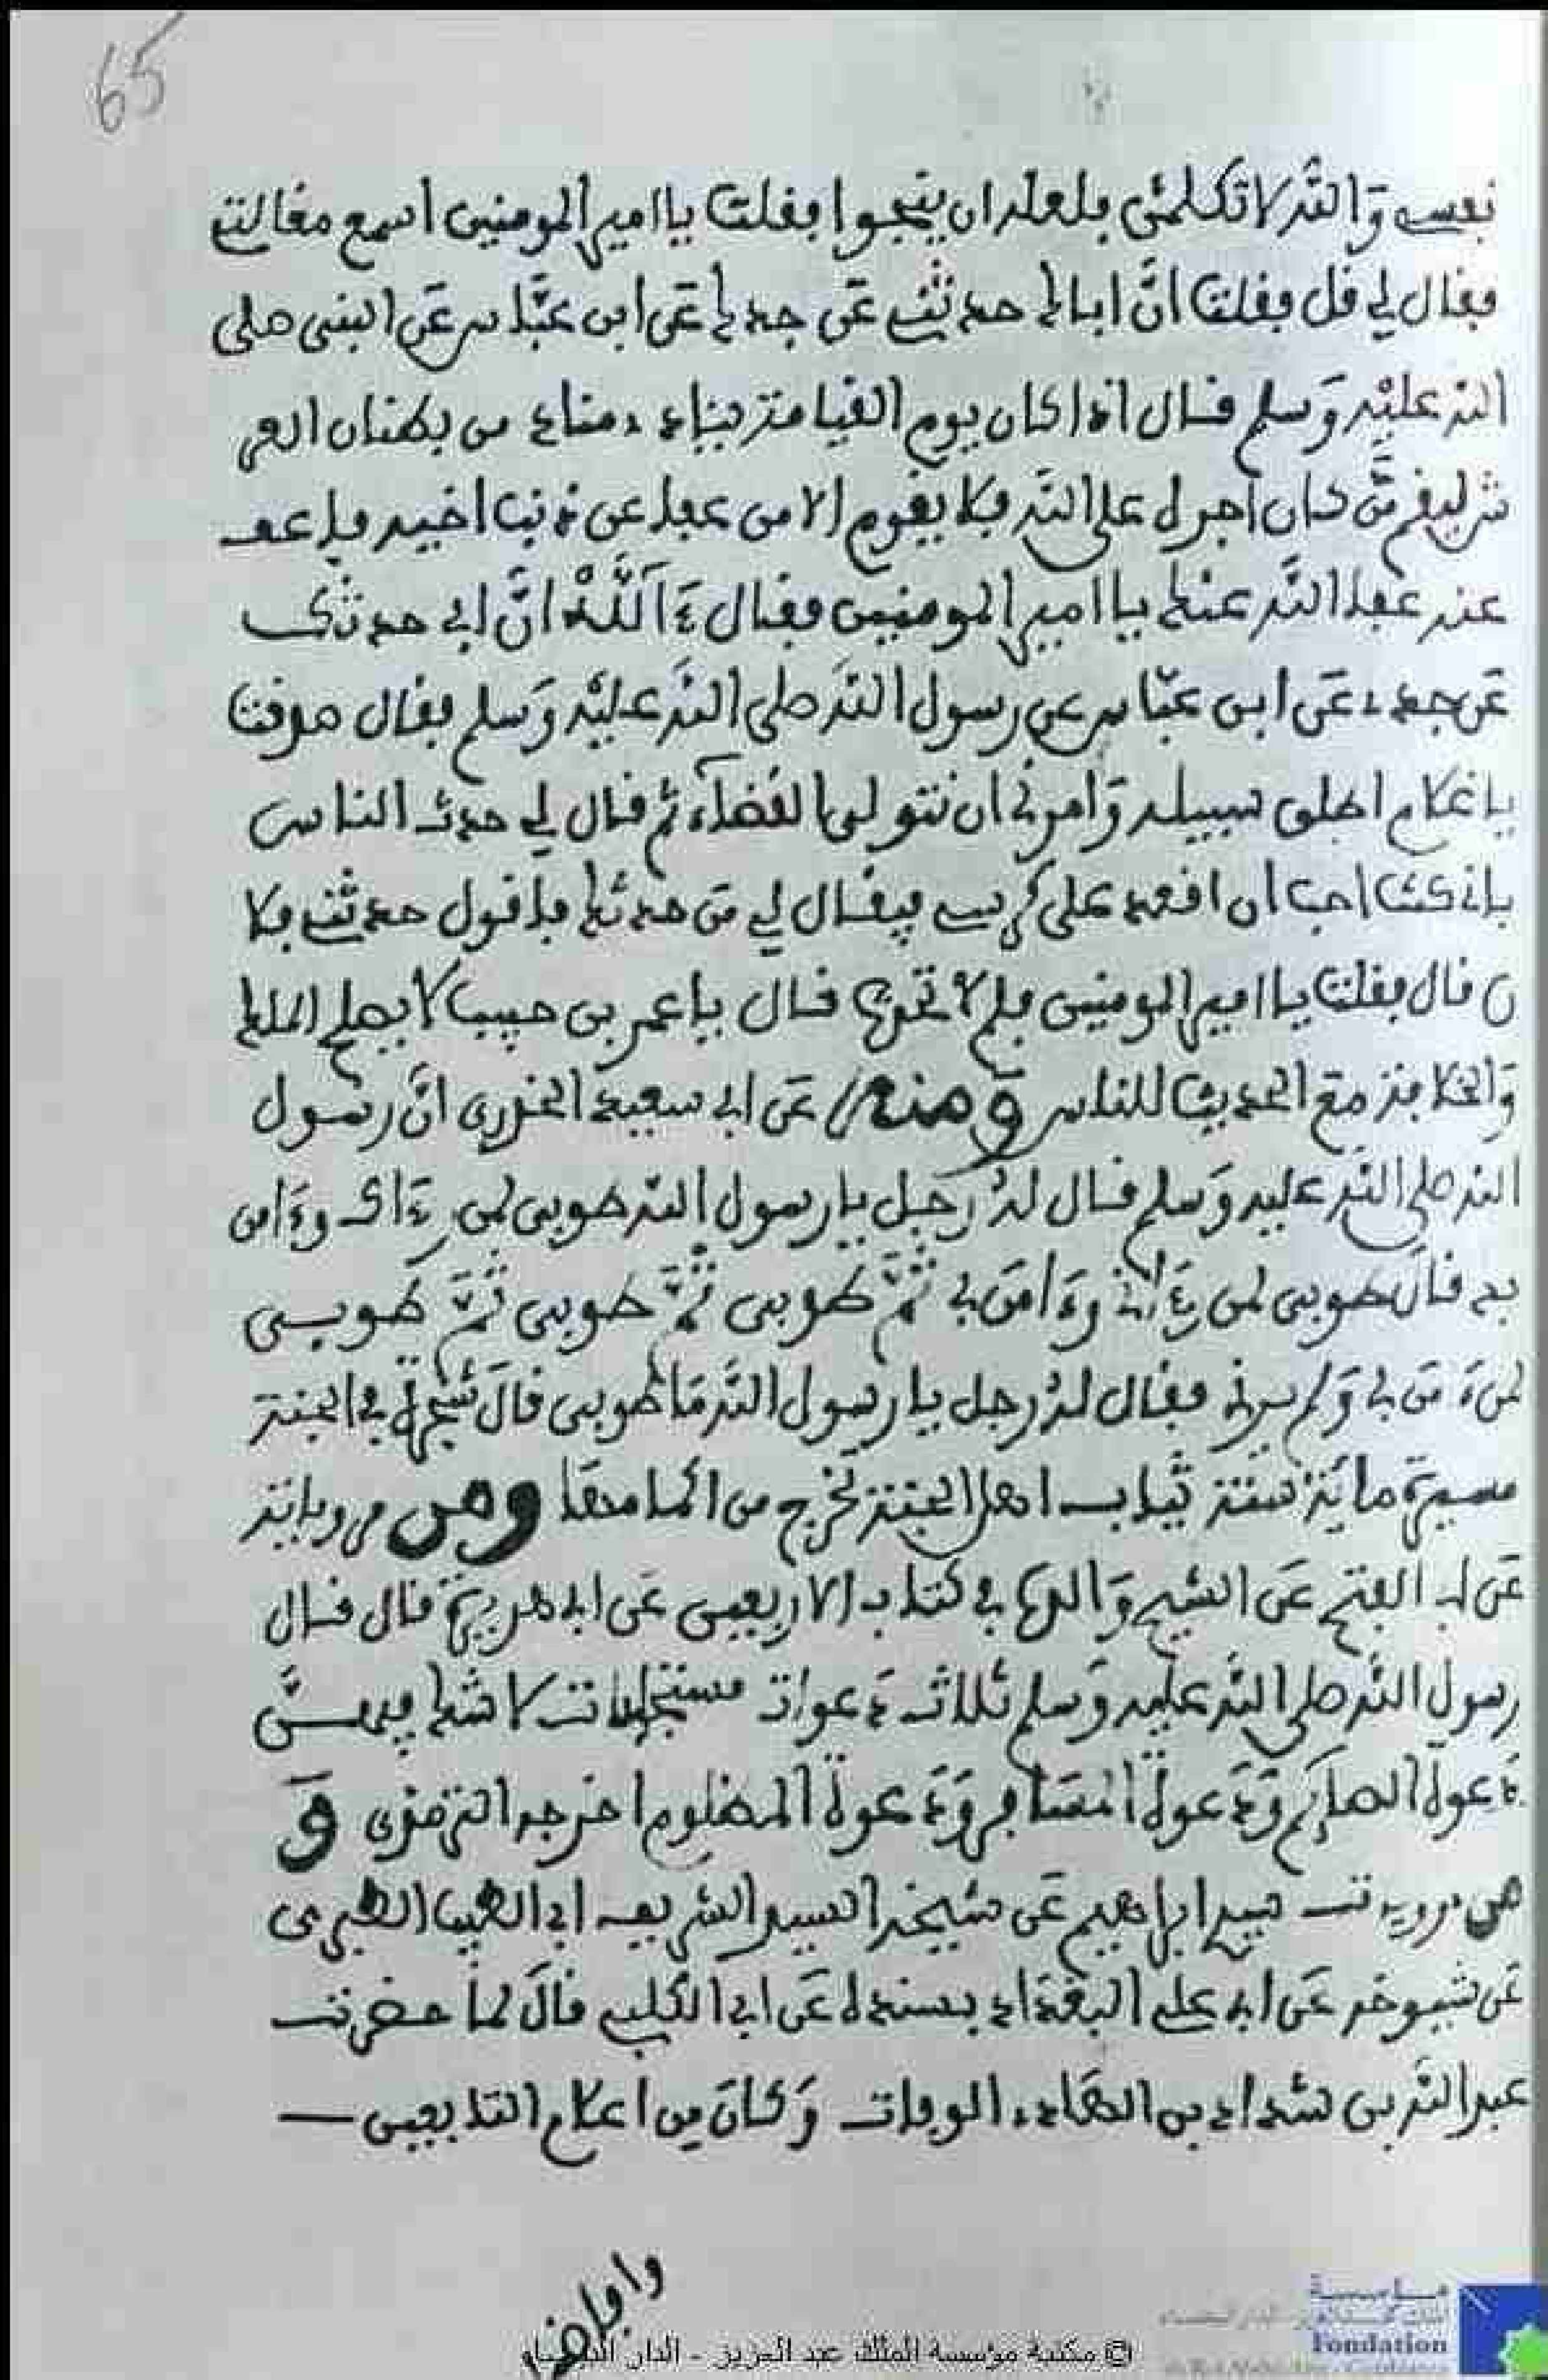 65
نفسي وَالله لاتكلمنّ فلعله ان ينجوا فقلت ياامير المومنين اسمع مقالتي
فقال لي قل فقلت انَّ اباك حدثني عَن جدك عَن ابن عبَّاس عَن النبي صلى
الله عليْه وَسلم قال اذا كان يوم القيامة ينادِ مناد من بطنان العر
ش ليقم مَّن كان اجره على الله فلا يقوم الا من عفا عن ذنب اخيه فاعف
عنه عفا الله عنك ياامير المومنين فقال ءَاللَّهْ انَّ ابي حدثك
عَن جده عَن ابن عبّاس عن رسول الله صلى الله عليْه وَسلم فقال صدقت
ياغلام اطلق سبيله وَامرني ان نتولى القضاء ثم قال لي حدث الناس
فاني كنت احب ان اقعد على كرسي فيقال لي مَن حدثك فاقول حدثني فلا
ن قال فقلت ياامير المومنين فلم لا تحدث قال ياعمر بن حبيب لا يصلح الملك
وَالخلافة مع الحديث للناس وَمنه عَن ابي سعيد الخدري انَّ رسول
الله صلى الله عليه وَسلم قال لهُ رَجل يارسول الله طوبى لمن رءاك وءامن
بك قالَ طوبى لمن رءَاني وءَامَن بي ثُمَّ طوبى ثُمَّ طوبى ثُمَّ طوبى
لمن ءَمَن بي وَلم يرني فقال لهُ رجل يارسول الله مَا طوبى قالَ شجرة في الجنة
مسيرة مائة سنة ثياب اهل الجنة تخرج من اكمامها ومن مروياته
عَن ابي الفتح عَن الشيخ وَالده في كتاب الاربعين عَن ابي هريرة قال قال
رسول الله صلى الله عليه وَسلم ثلاث دعوات مستجابات لا شك فيهنَّ
دَعوة الصائم وَدَعوة المسَافر وَدَعوة المظلوم اخرجه الترمذي وَ
من مرويات سيد ابراهيم عَن شيخه السيد الشريف ابي الطيب الطبري
عَن شيوخه عَن ابي علي البغدَاد بسنده عَن ابي الكلبي قالَ لما حضرت
عبد الله بن شداد بن الهاد الوفات وَكانَ من اعلام التابعين
© مكتبة مؤسسة الملك عبد العزيز - الدار البيضاء
مؤسسة
Fondation